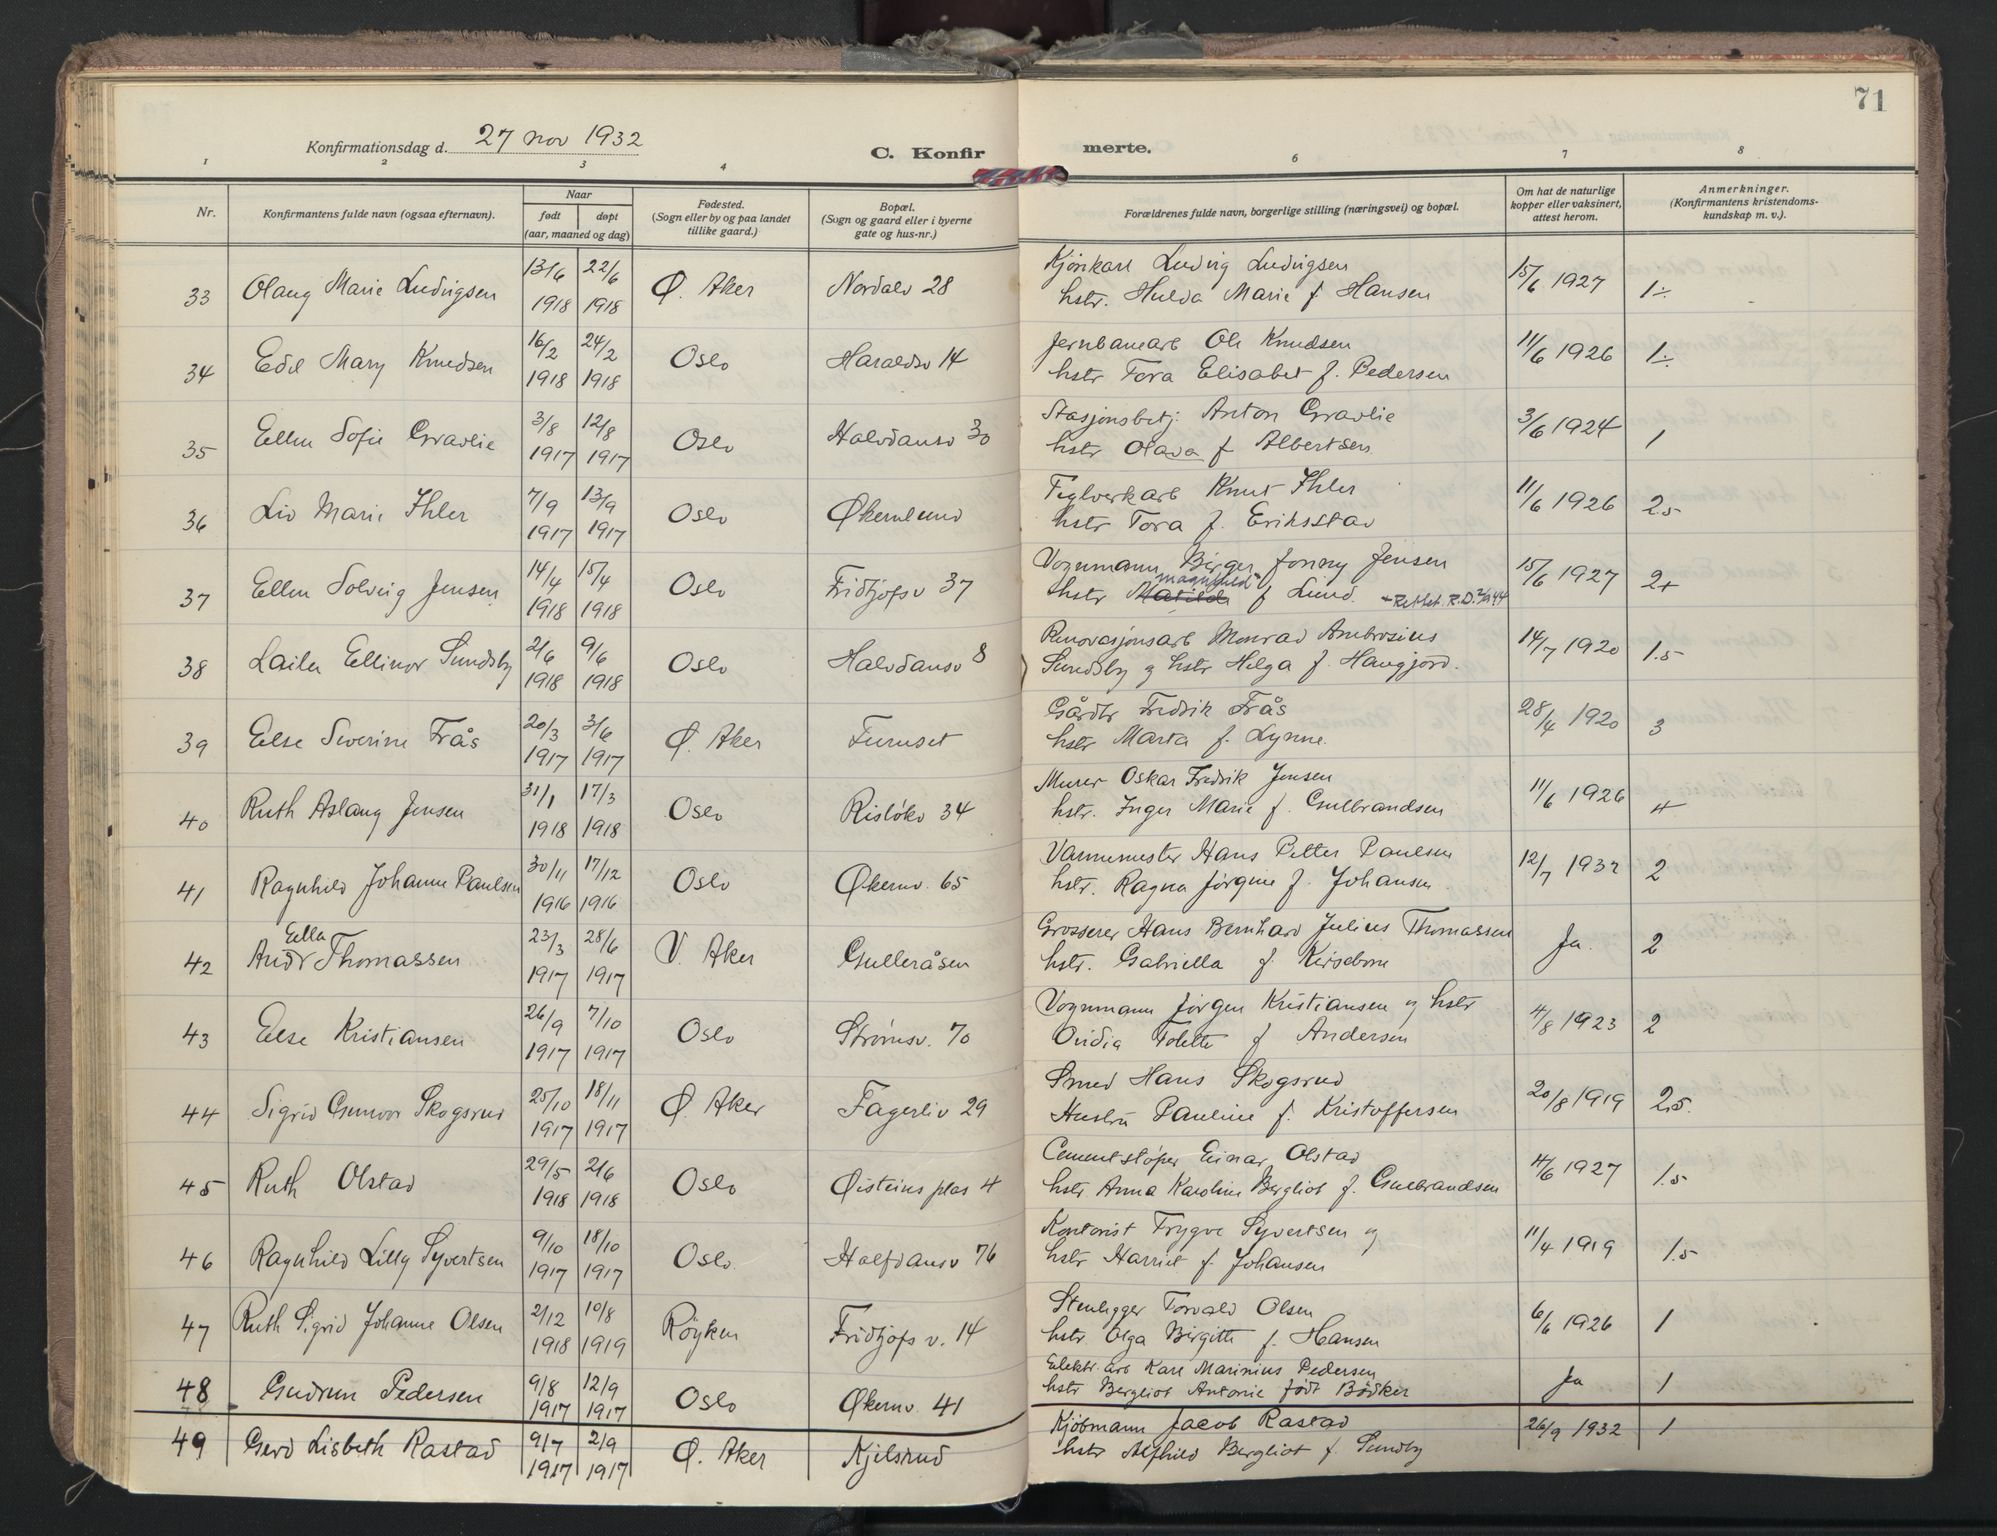 71
Konfirmationsdag d. 27 nov 1932
C. Konfir merte.
1 2 3 4 6 7 8
Nr.
Konfirmantens fulde navn (ogsaa efternavn).
Naar
født døpt
(aar, maaned og dag)
Fødested.
(Sogn eller by og paa landet
tillike gaard.)
Bopæl.
(Sogn og gaard eller i byerne
gate og hus-nr.)
Forældrenes fulde navn, borgerlige stilling (næringsvei) og bopæl.
Om hat de naturlige
kopper eller vaksinert,
attest herom.
Anmerkninger.
(Konfirmantens kristendoms-
kundskap m. v.).
33 Olaug Marie Ludvigsen 13/6 1918 22/6 1918 Ø. Aker Nordalv 28
Kjørekarl Ludvig Ludvigsen
hstr. Hulda Marie f Hansen 15/6 1927 1÷
34 Edel Mary Knudsen 16/2 1918 24/2 1918 Oslo Haraldsv 14
Jernbanearb Ole Knudsen
hstr Tora Elisabet f. Pedersen 11/6 1926 1÷
35 Ellen Sofie Gravlie 3/8 1917 12/8 1917 Oslo Halvdansv 30
Stasjonsbetj. Anton Gravlie
hstr Olava f Albertsen 3/6 1924 1
36 Liv Marie Ihler 7/9 1917 13/9 1917 Oslo Økernlund
Teglverkarb Knut Ihler
hstr Tora f. Eriksstad 11/6 1926 2.5
37 Ellen Solveig Jensen 14/4 1918 15/4 1918 Oslo Fridtjofsv 37
Vognmann Birger Jonny Jensen
hstr Matilde Magnhild f Lund. + Rettet. R.D. 44 15/6 1927 2+
38 Laila Ellinor Sundsby 2/6 1918 9/6 1918 Oslo Halvdansv 8
Renovasjonsarb Monrad Ambrosius
Sundsby og hstr Helga f. Haugjord. 14/7 1920 1.5
39 Else Severine Frås 20/3 1917 3/6 1917 Ø. Aker Furuset
Gårdbr Fredrik Frås
hstr Marta f. Lynne. 28/4 1920 3
40 Ruth Aslaug Jensen 31/1 1918 17/3 1918 Oslo Risløkv 34
Murer Oskar Fredrik Jensen
hstr. Inger Marie f. Gulbrandsen 11/6 1926 4
41 Ragnhild Johanne Paulsen 30/11 1916 17/12 1916 Oslo Økernv. 65
Varmemester Hans Petter Paulsen
hstr. Ragna Jørgine f. Johansen 12/7 1932 2
42 Ella Thomassen 23/3 1917 28/6 1917 V. Aker Gulleråsen
Grosserer Hans Bernhard Julius Thomassen
hstr. Gabriella f Kirsebom Ja. 2
43 Else Kristiansen 26/9 1917 7/10 1917 Oslo Strømsv. 70
Vognmann Jørgen Kristiansen og hstr
Ovidia Tolette f Andersen 4/8 1923 2
44 Sigrid Gunvor Skogsrud 25/10 1917 18/11 1917 Ø. Aker Fagerliv 29
Smed Hans Skogsrud
Hustru Pauline f. Kristoffersen 20/8 1919 2.5.
45 Ruth Olstad 29/5 1918 2/6 1918 Oslo Øisteins plas 4
Cementstøper Einar Olstad
hstr Anna Karoline Bergliot f. Gulbrandsen 4/6 1927 1.5
46 Ragnhild Lilly Syvertsen 9/10 1917 18/10 1917 Oslo. Halfdansv 76
Kontorist Trygve Syvertsen og
hstr Harriet f. Johansen 11/4 1919 1.5
47 Ruth Sigrid Johanne Olsen 2/12 1918 10/8 1919 Røyken Fridtjofs v. 14
Stenlegger Torvald Olsen
hstr. Olga Birgitte f. Hansen 6/6 1926 1
48 Gudrun Pedersen 9/8 1917 12/9 1917 Oslo Økernv. 41
Elektr. arb Karl Marinius Pedersen
hstr Bergliot Antonie født Bödker Ja 1
49 Gerd Lisbeth Rastad 9/7 1917 2/9 1917 Ø. Aker Kjelsrud
Kjøbmann Jacob Rastad
hstr Alfhild Bergliot f. Sundby 26/9 1932 1